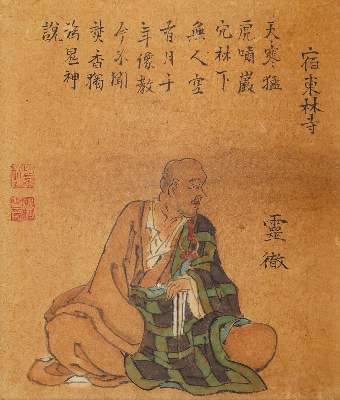 宿東林寺
天寒猛
虎嘯巖
穴林下
無人空
有月千
年像教
今不聞
焚香獨
為鬼神
說
靈徹